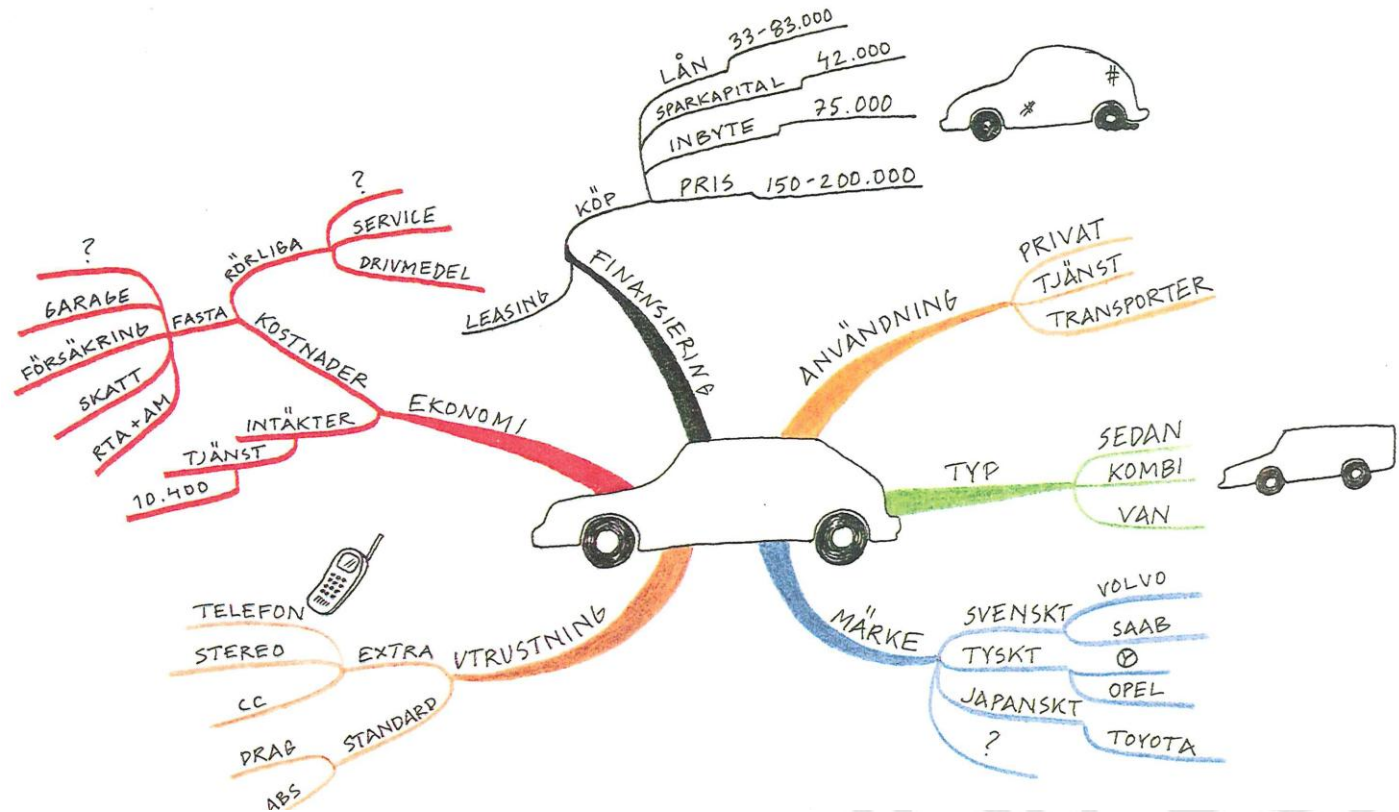 FINANSIERING
KÖP
LÅN 33-83.000
SPARKAPITAL 42.000
INBYTE 75.000
PRIS 150-200.000
LEASING
ANVÄNDNING
PRIVAT
TJÄNST
TRANSPORTER
TYP
SEDAN
KOMBI
VAN
MÄRKE
SVENSKT
VOLVO
SAAB
TYSKT
OPEL
JAPANSKT
TOYOTA
?
UTRUSTNING
EXTRA
TELEFON
STEREO
CC
STANDARD
DRAG
ABS
EKONOMI
KOSTNADER
RÖRLIGA
?
SERVICE
DRIVMEDEL
FASTA
?
GARAGE
FÖRSÄKRING
SKATT
RTA+AM
INTÄKTER
TJÄNST
10.400